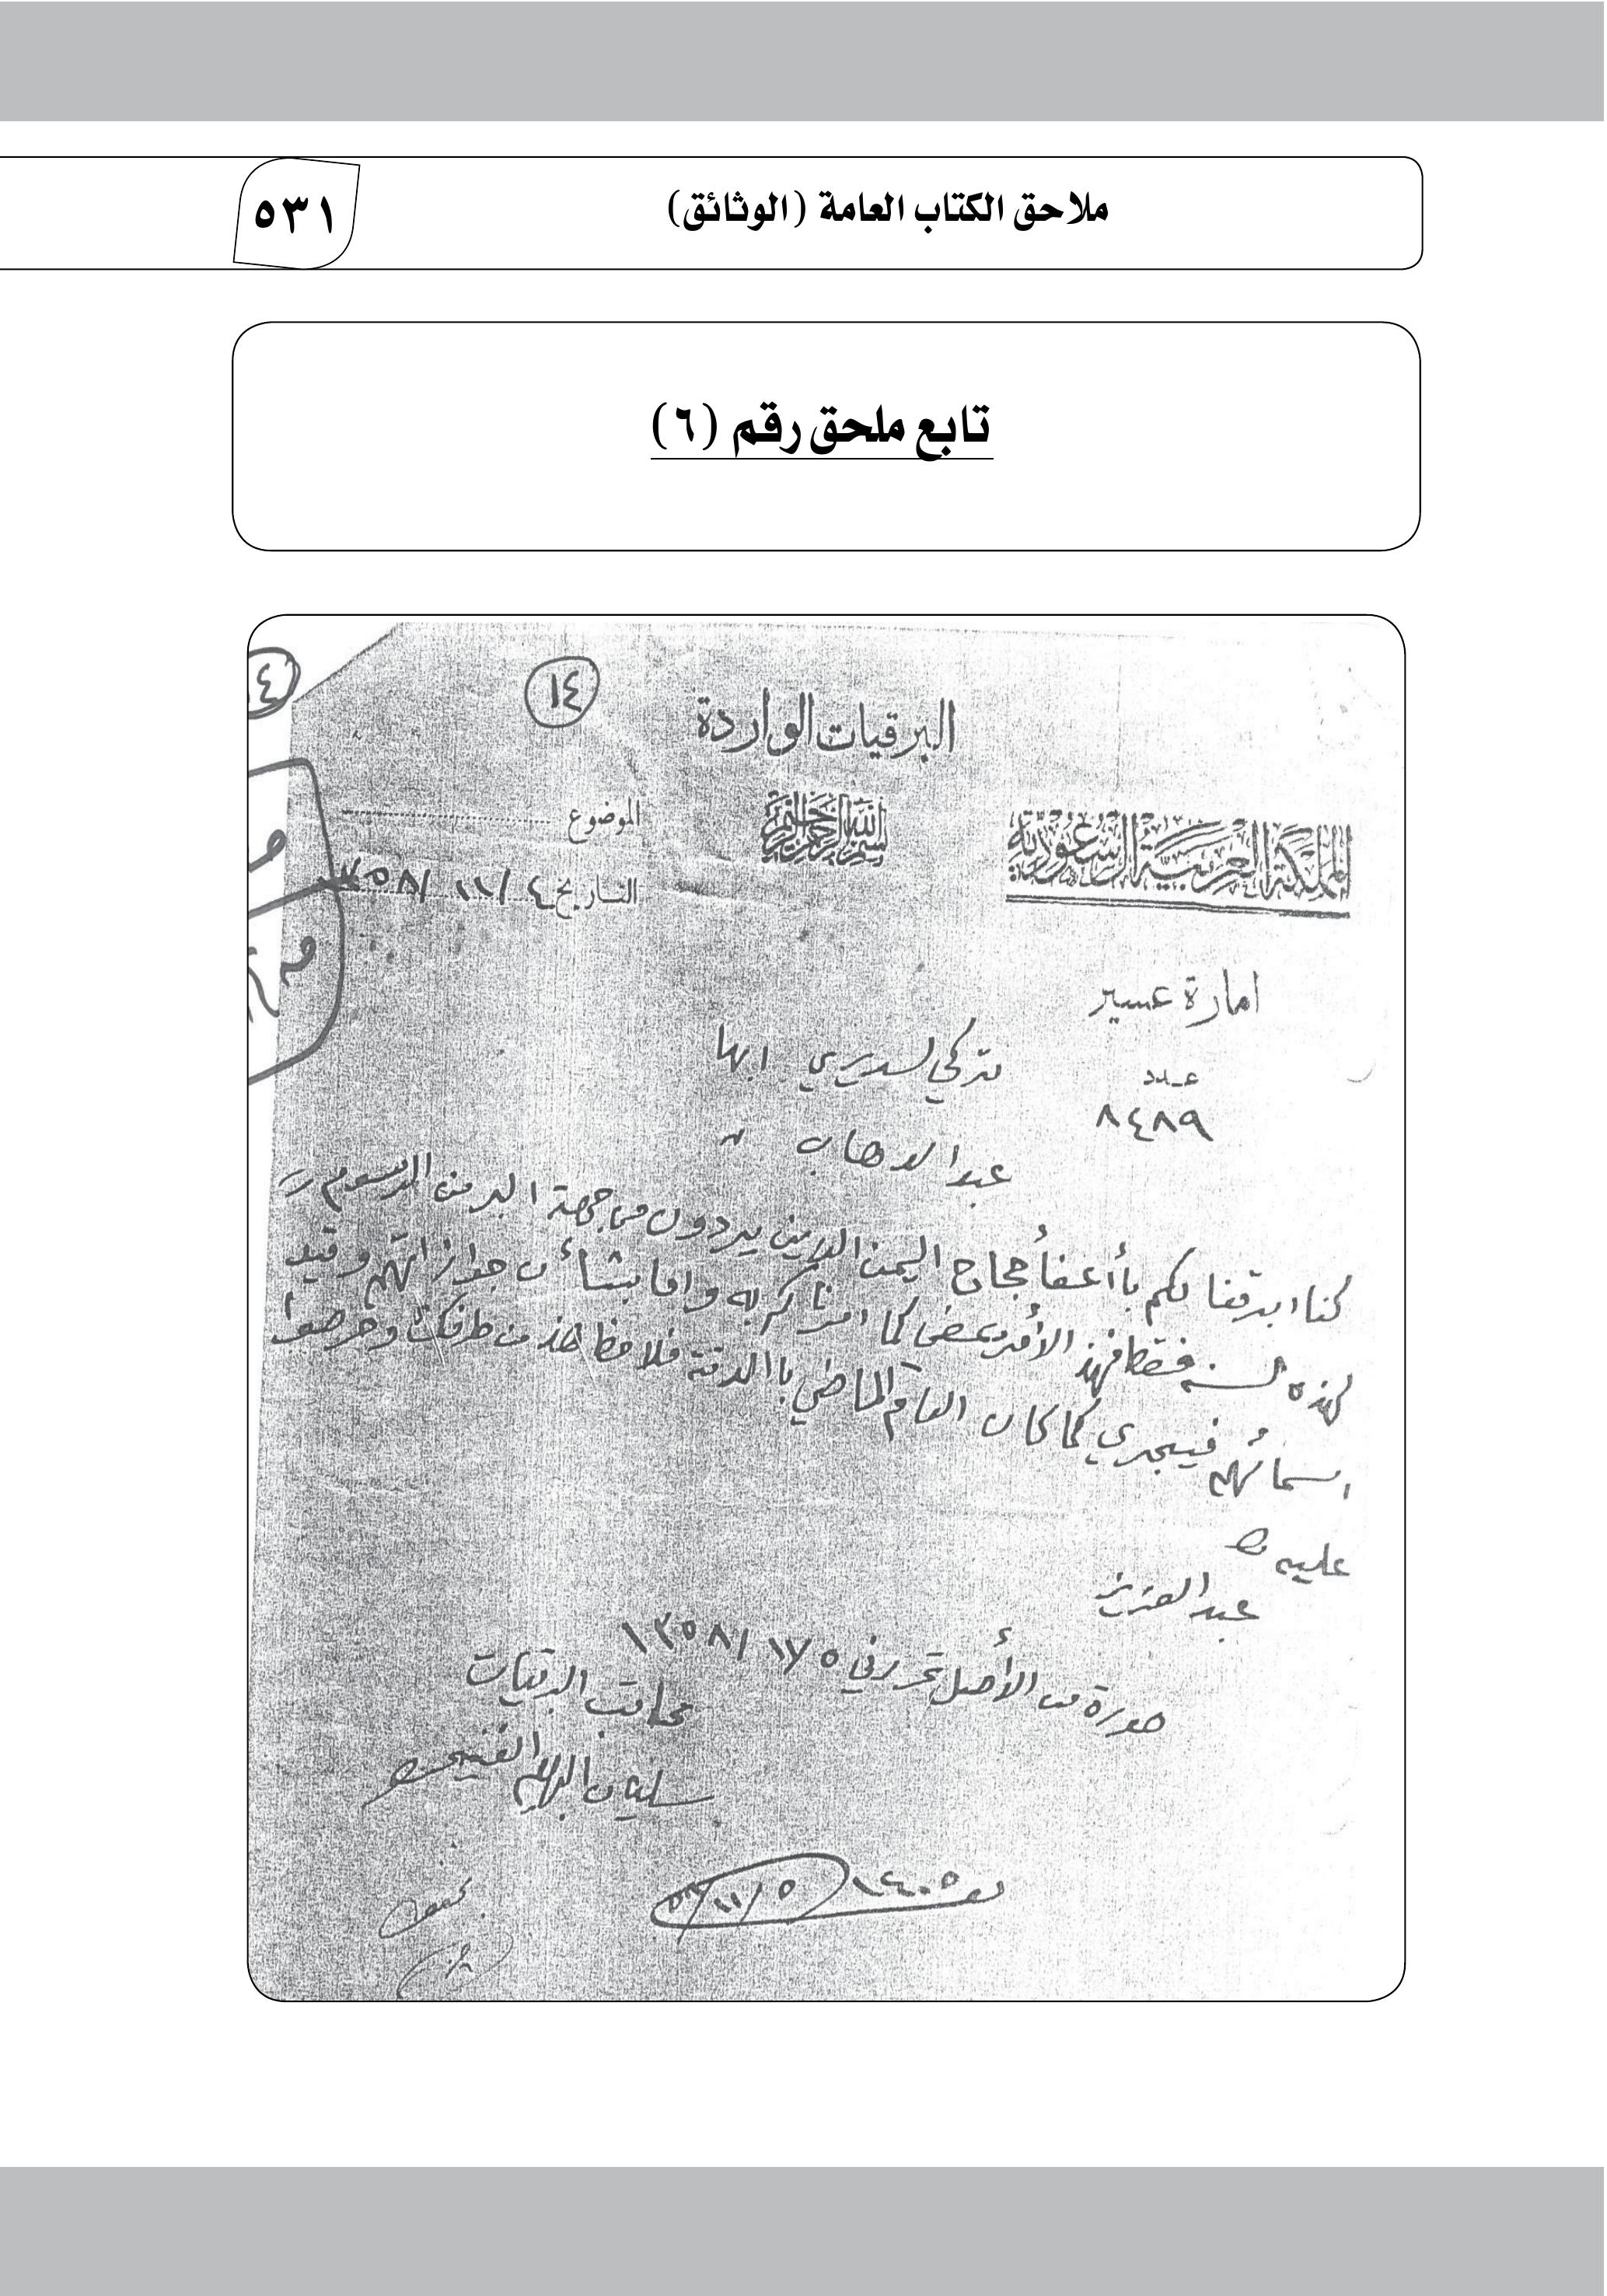 ملاحق الكتاب العامة (الوثائق)
٥٣١
تابع ملحق رقم (٦)
١٤
البرقيات الواردة
المملكة العربية السعودية
بسم الله الرحمن الرحيم
الموضوع
التاريخ ٤/ ١١/ ١٣٥٨
امارة عسير
عدد
٨٤٨٩
تركي السديري ابها
عبد الوهاب "
كنا ابرقنا لكم بأعفأ حجاج اليمن الذين يردون من جهة البر من الرسوم
لهذه السنه فقط فهذ الأمر يمضى كما امرناكم به واما بشأن جوازاتهم وقيد
اسمائهم فيجري كما كان العام الماضي باالدقة فلاحظ هذ من طرفكم وحرصوا
عليه
عبد العزيز
صورة من الأصل تحرر في ٥ /١١ /١٣٥٨
كاتب البرقيات
سليمان